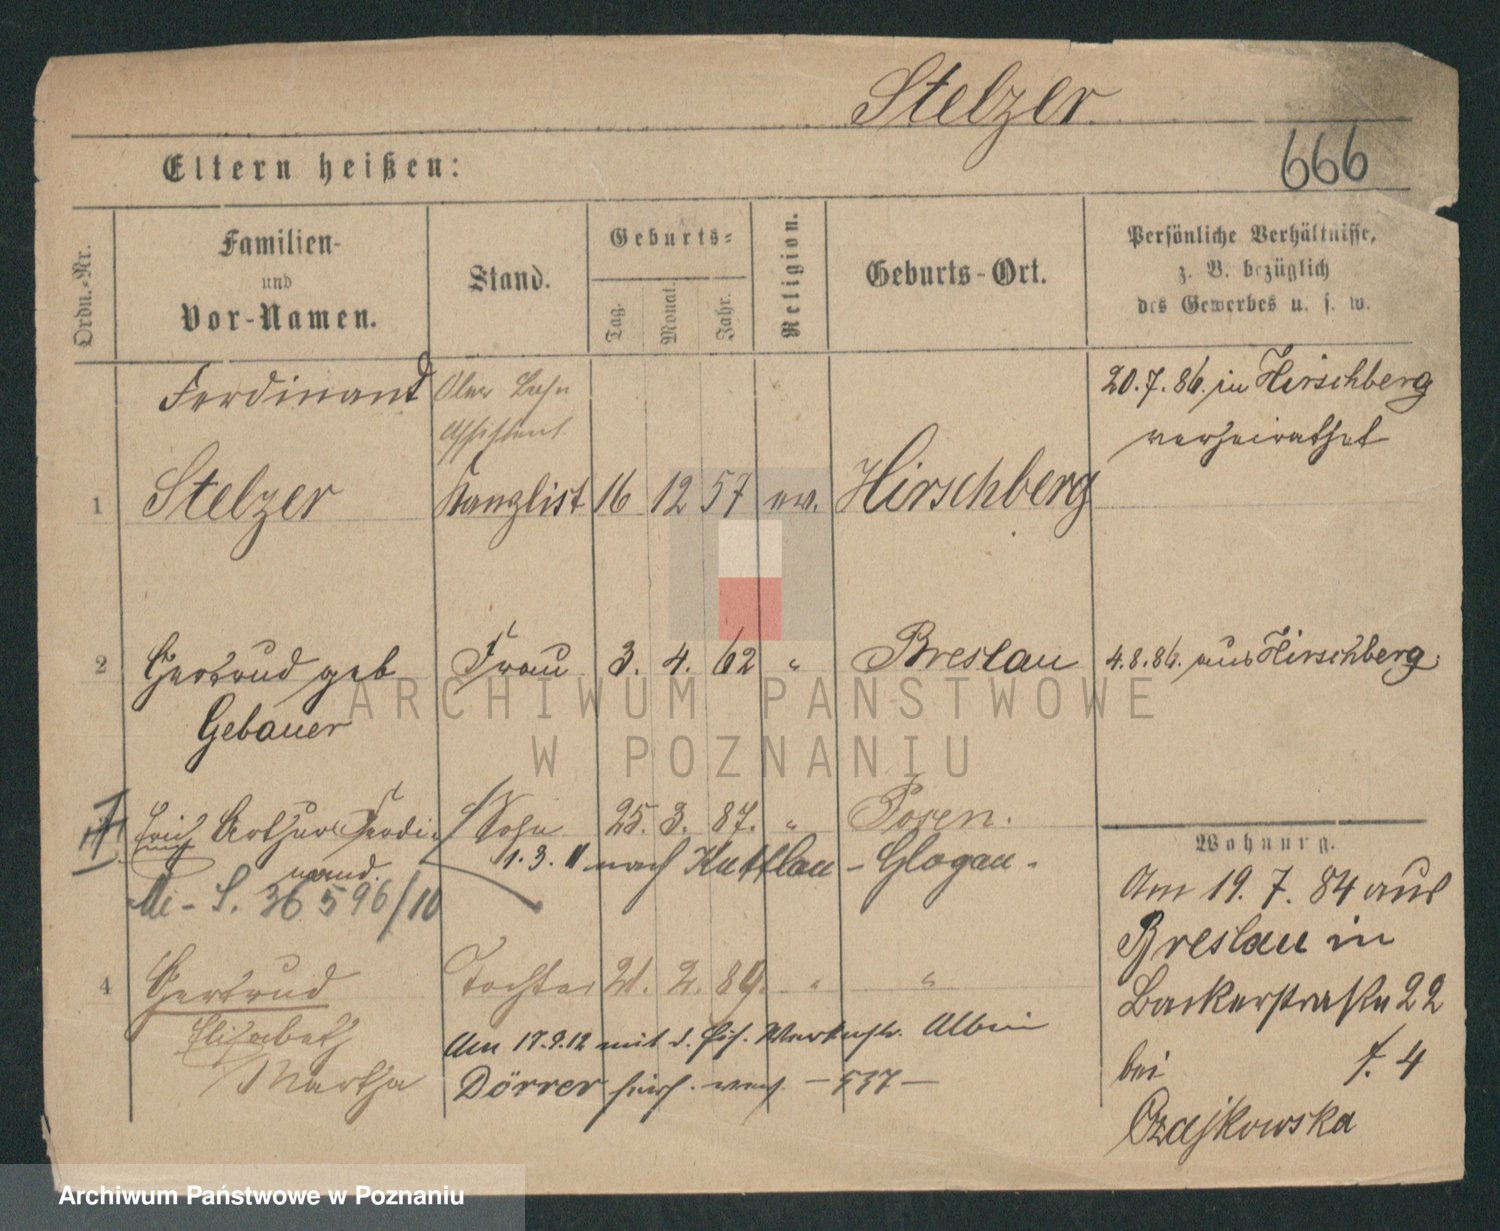 Stelzer
666
Eltern heißen:
Ordn.-Nr.
Familien-
und
Vor-Namen.
Stand.
Geburts-
Tag.
Monat.
Jahr.
Religion.
Geburts-Ort.
Persönliche Verhältnisse,
z. B. bezüglich
des Gewerbes u. s. w.
Ferdinand
Ober
Assistent
20.7.86. in Hirschberg
verheirathet
1 Stelzer Kanzlist 16 12 57 ev. Hirschberg
2 Gertrud geb Frau 3. 4. 62 " Breslau 4.8.86. aus Hirschberg.
Gebauer
Erich Arthur Ferdi- Sohn 25. 3. 87. " Posen.
nand. 1. 3. 11 nach Kuttlau - Glogau -
S. 36 596/10
4 Gertrud Tochter 21. 2. 89. " "
Elisabeth
Martha
Am 17.9.12 mit d. Albin
Dörrer - 537 -
Wohnung.
Am 19. 7. 84 aus
Breslau in
Backerstraße 22
bei f. 4
Czajkowska
ARCHIWUM PAŃSTWOWE
W POZNANIU
Archiwum Państwowe w Poznaniu